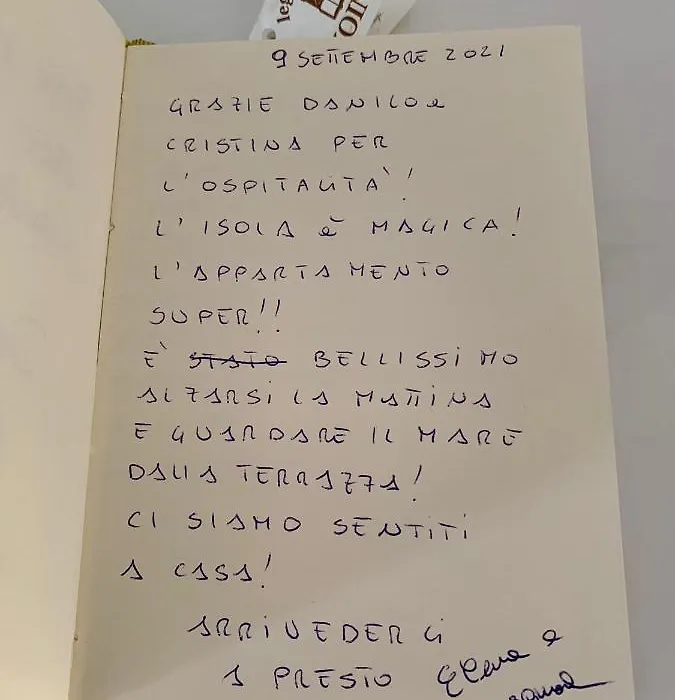 9 SETTEMBRE 2021
GRAZIE DANILO e
CRISTINA PER
L'OSPITALITA'!
L'ISOLA è MAGICA!
L'APPARTAMENTO
SUPER!!
E' STATO BELLISSIMO
ALZARSI LA MATTINA
E GUARDARE IL MARE
DALLA TERRAZZA!
CI SIAMO SENTITI
A CASA!
ARRIVEDERCI
A PRESTO Elena e